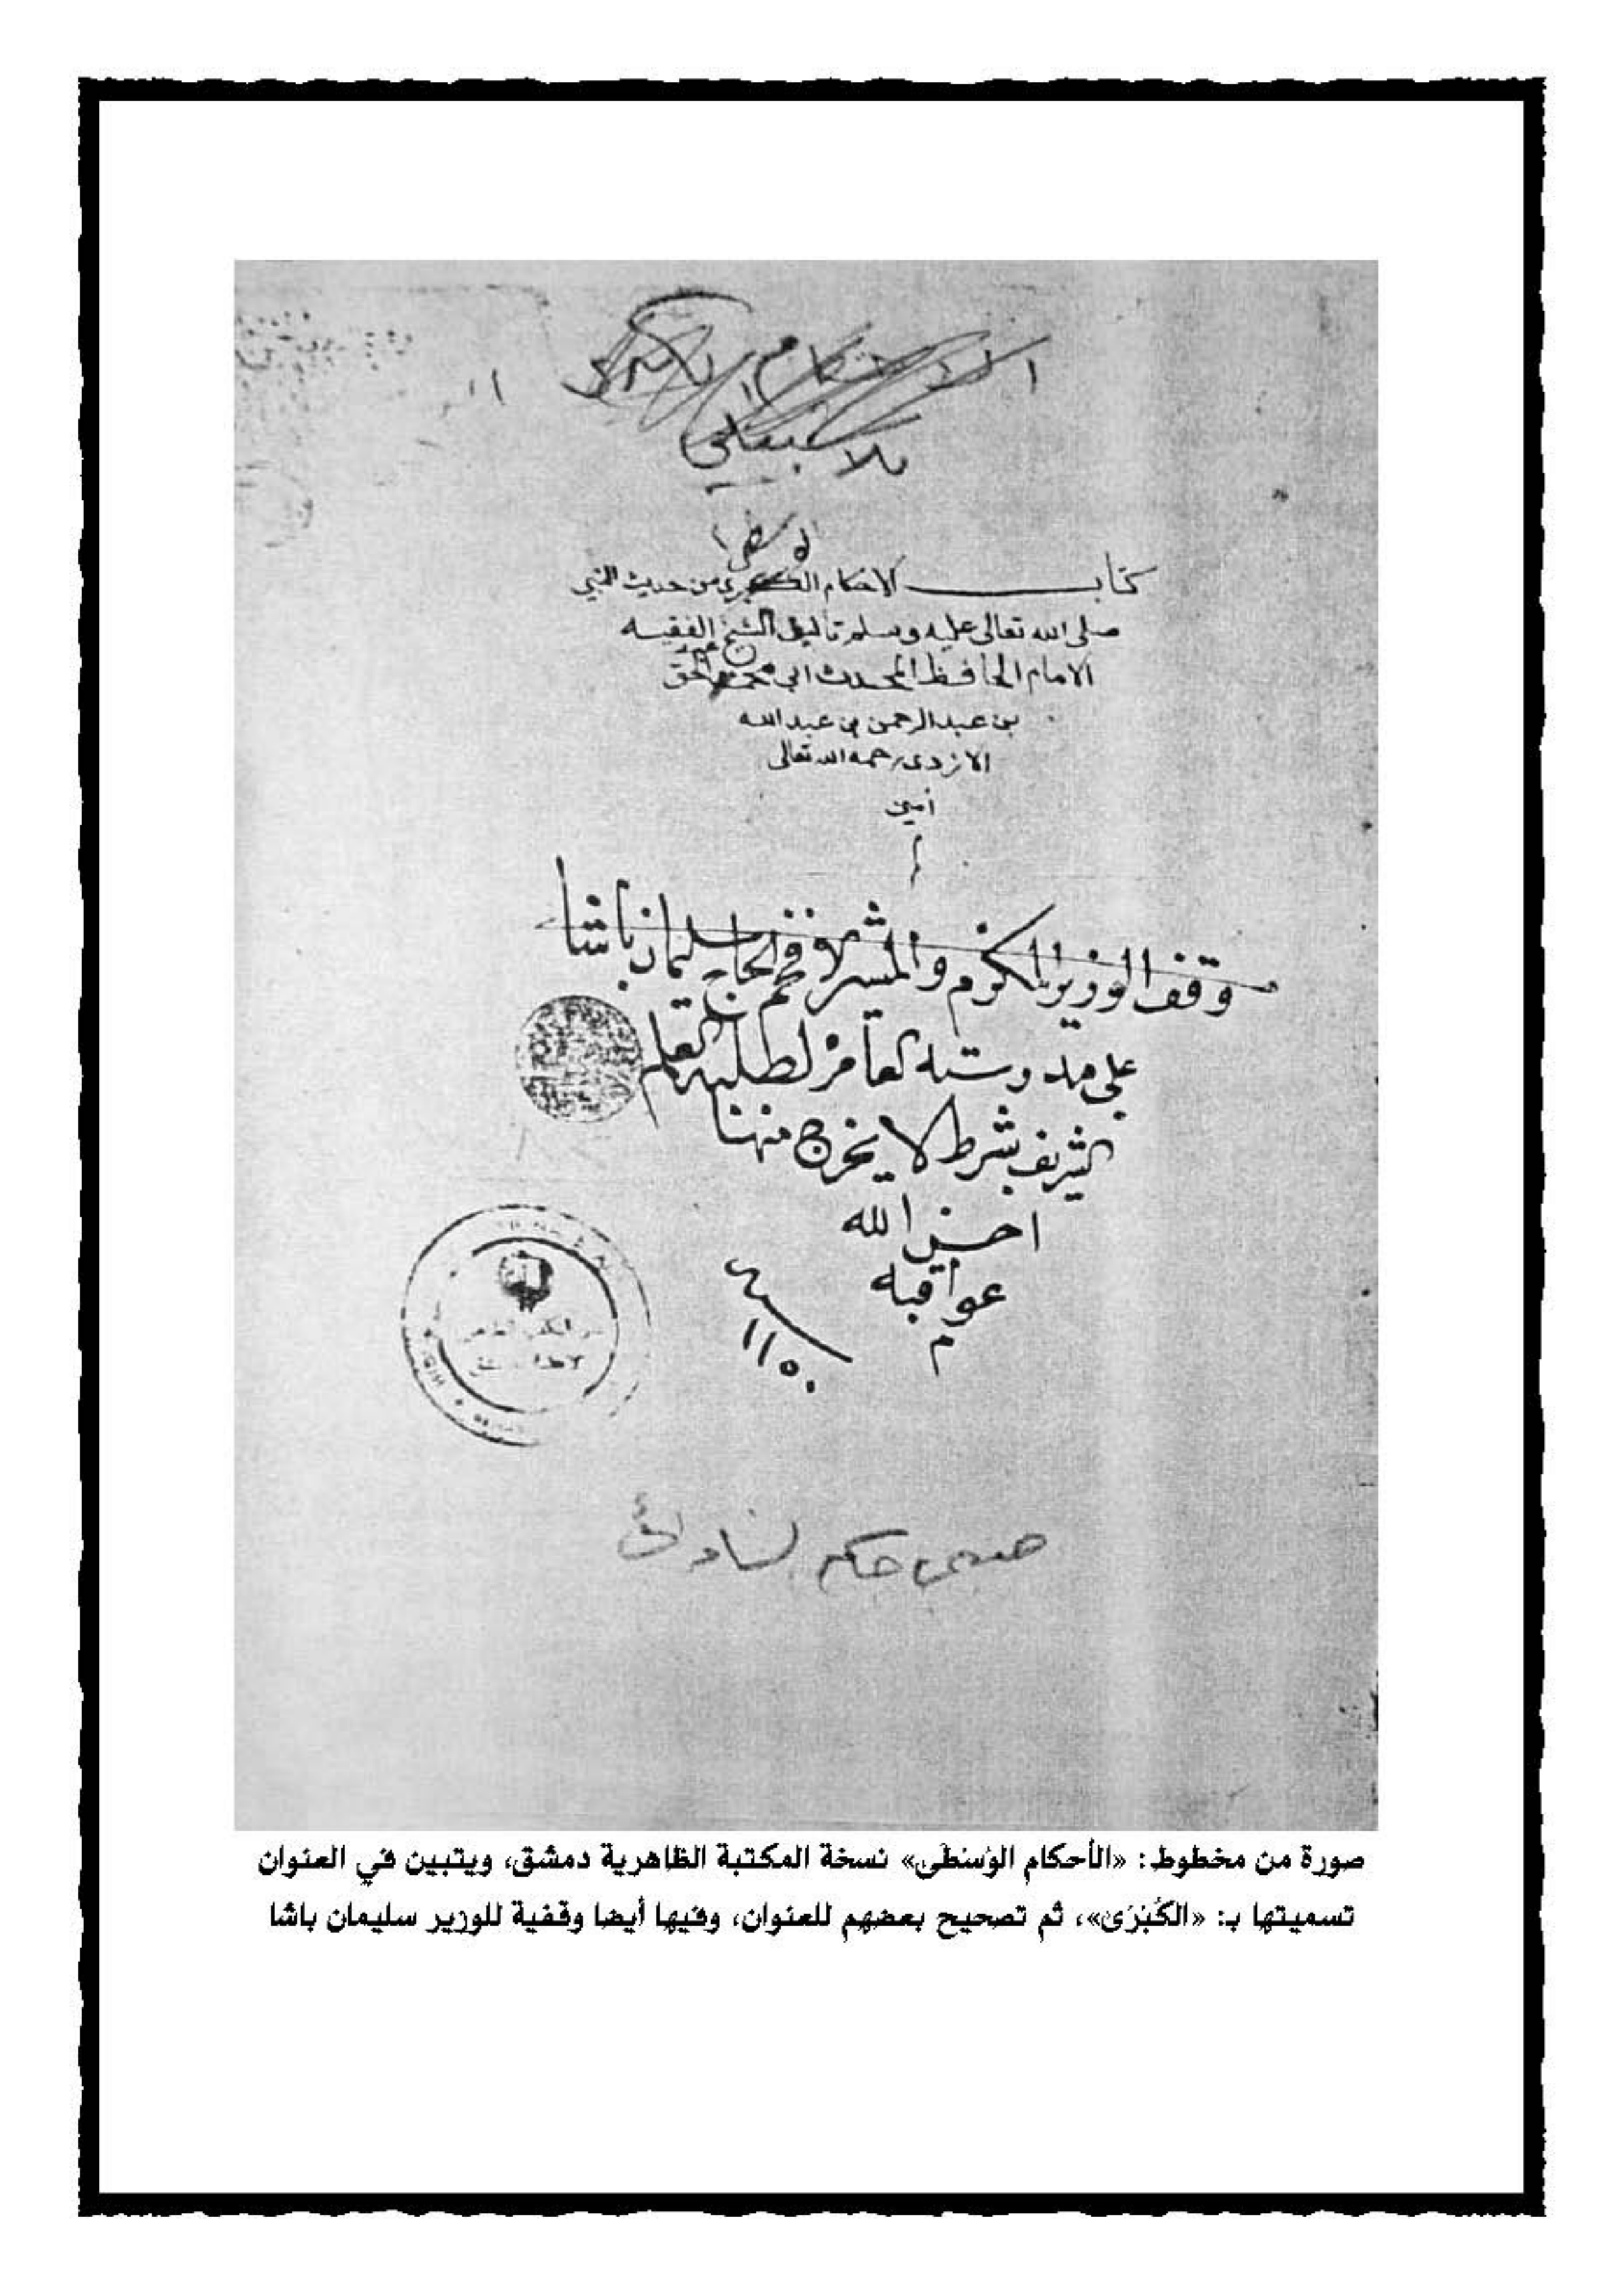 الاحكام الكبرى
للاشبيلي
الوسطى
كتاب الاحكام الكبرى من حديث النبي
صلى الله تعالى عليه وسلم تاليف الشيخ الفقيه
الامام الحافظ المحدث ابي محمد عبد الحق
بن عبد الرحمن بن عبد الله
الازدي رحمه الله تعالى
امين
وقف الوزير المكرم والمشير الافخم الحاج سليمان باشا
على مدرسته العامرة لطلبة العلم
الشريف بشرط لا يخرج منها
احسن الله
عواقبه
م
١١٥٠
صورة من مخطوط: «الأحكام الوُسْطَى» نسخة المكتبة الظاهرية دمشق، ويتبين في العنوان
تسميتها بـ: «الكُبْرَى»، ثم تصحيح بعضهم للعنوان، وفيها أيضا وقفية للوزير سليمان باشا